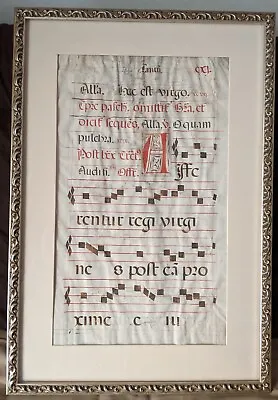 CXJ.
Alla. Hec est virgo.
Tpe pasch. omittit Gra. et
dicit sequēs. Alla. ℣. O quam
pulchra.
Post Trct.
Audi fi. Offr. Affe
rentur regi virgi
ne s post eā pro
xime . e iu